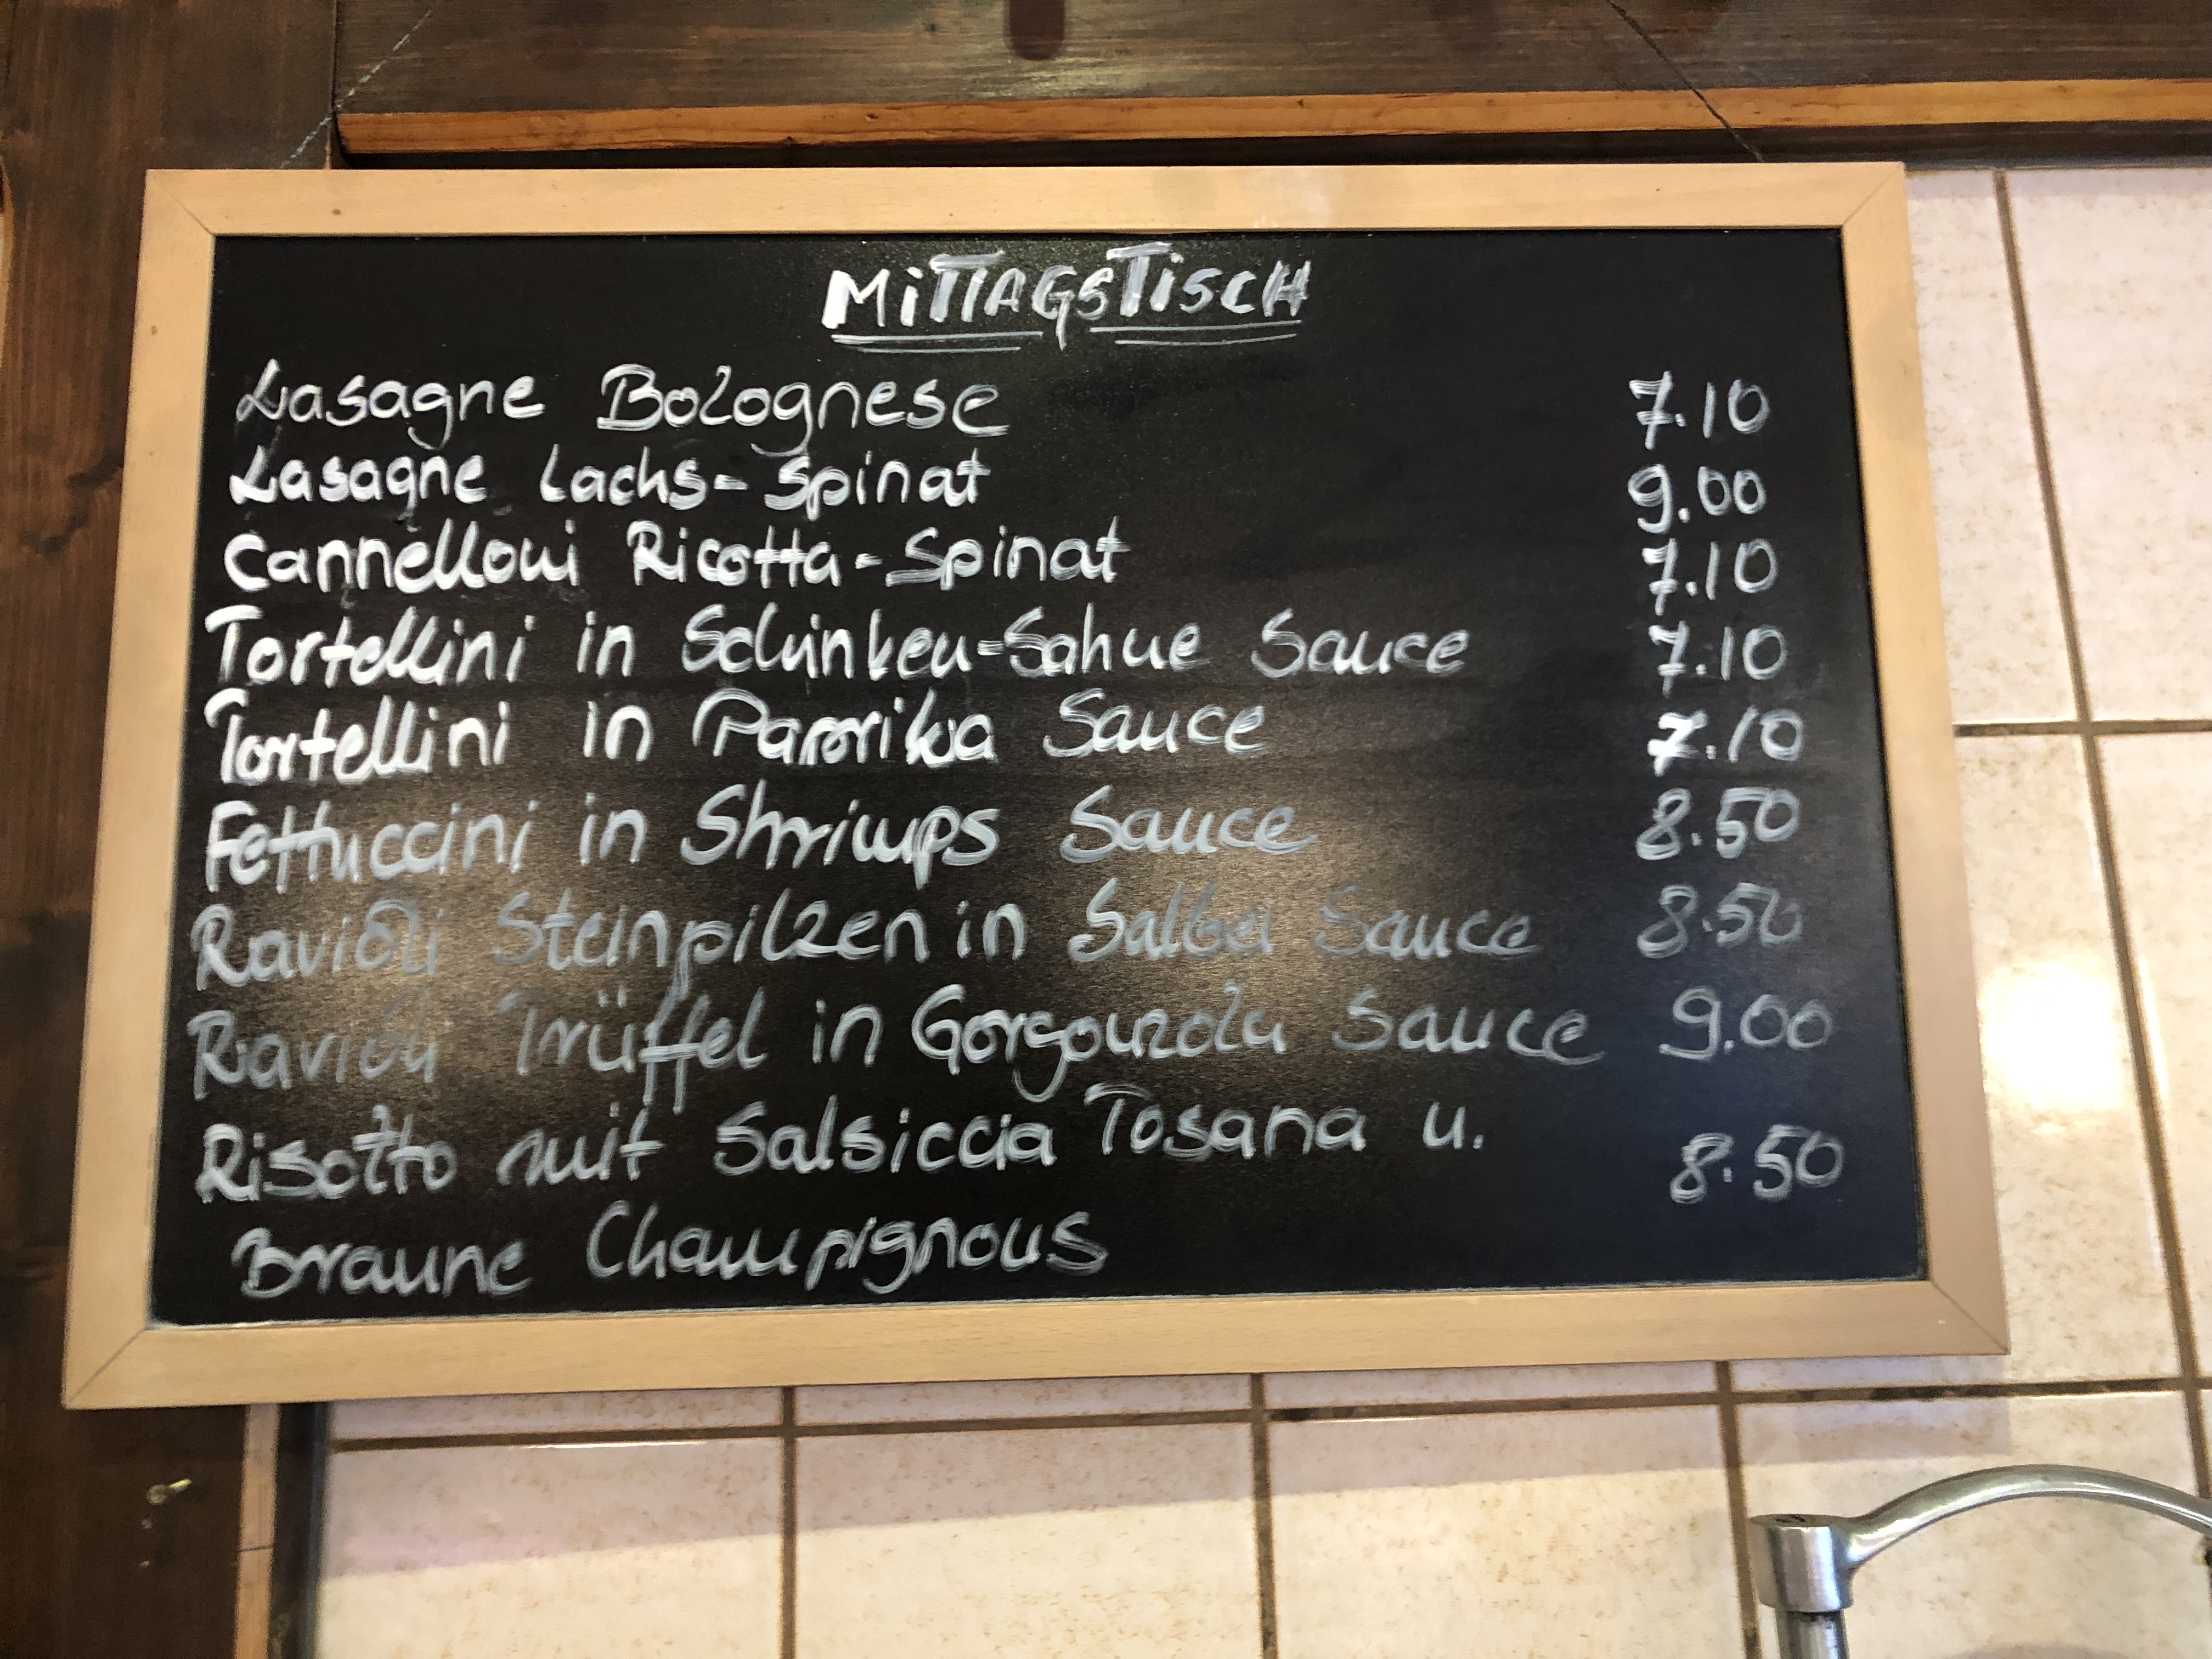 MITTAGSTISCH
Lasagne Bolognese 7.10
Lasagne Lachs-Spinat 9.00
Cannelloni Ricotta-Spinat 7.10
Tortellini in Schinken-Sahne Sauce 7.10
Tortellini in Paprika Sauce 7.10
Fettuccini in Shrimps Sauce 8.50
Ravioli Steinpilzen in Salbei Sauce 8.50
Ravioli Trüffel in Gorgonzola Sauce 9.00
Risotto mit Salsiccia Tosana u. 8.50
Braune Champignons